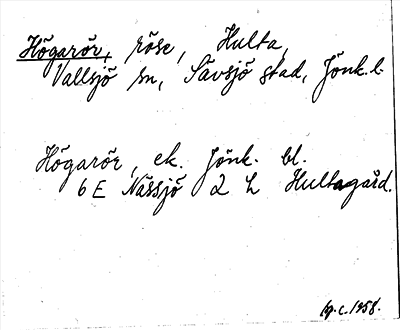 Högarör, röse, Hulta,
Vallsjö sn, Sävsjö stad, Jönk. l.
Högarör, ek. Jönk. bl.
6 E Nässjö 2 h Hultagård.
1958.